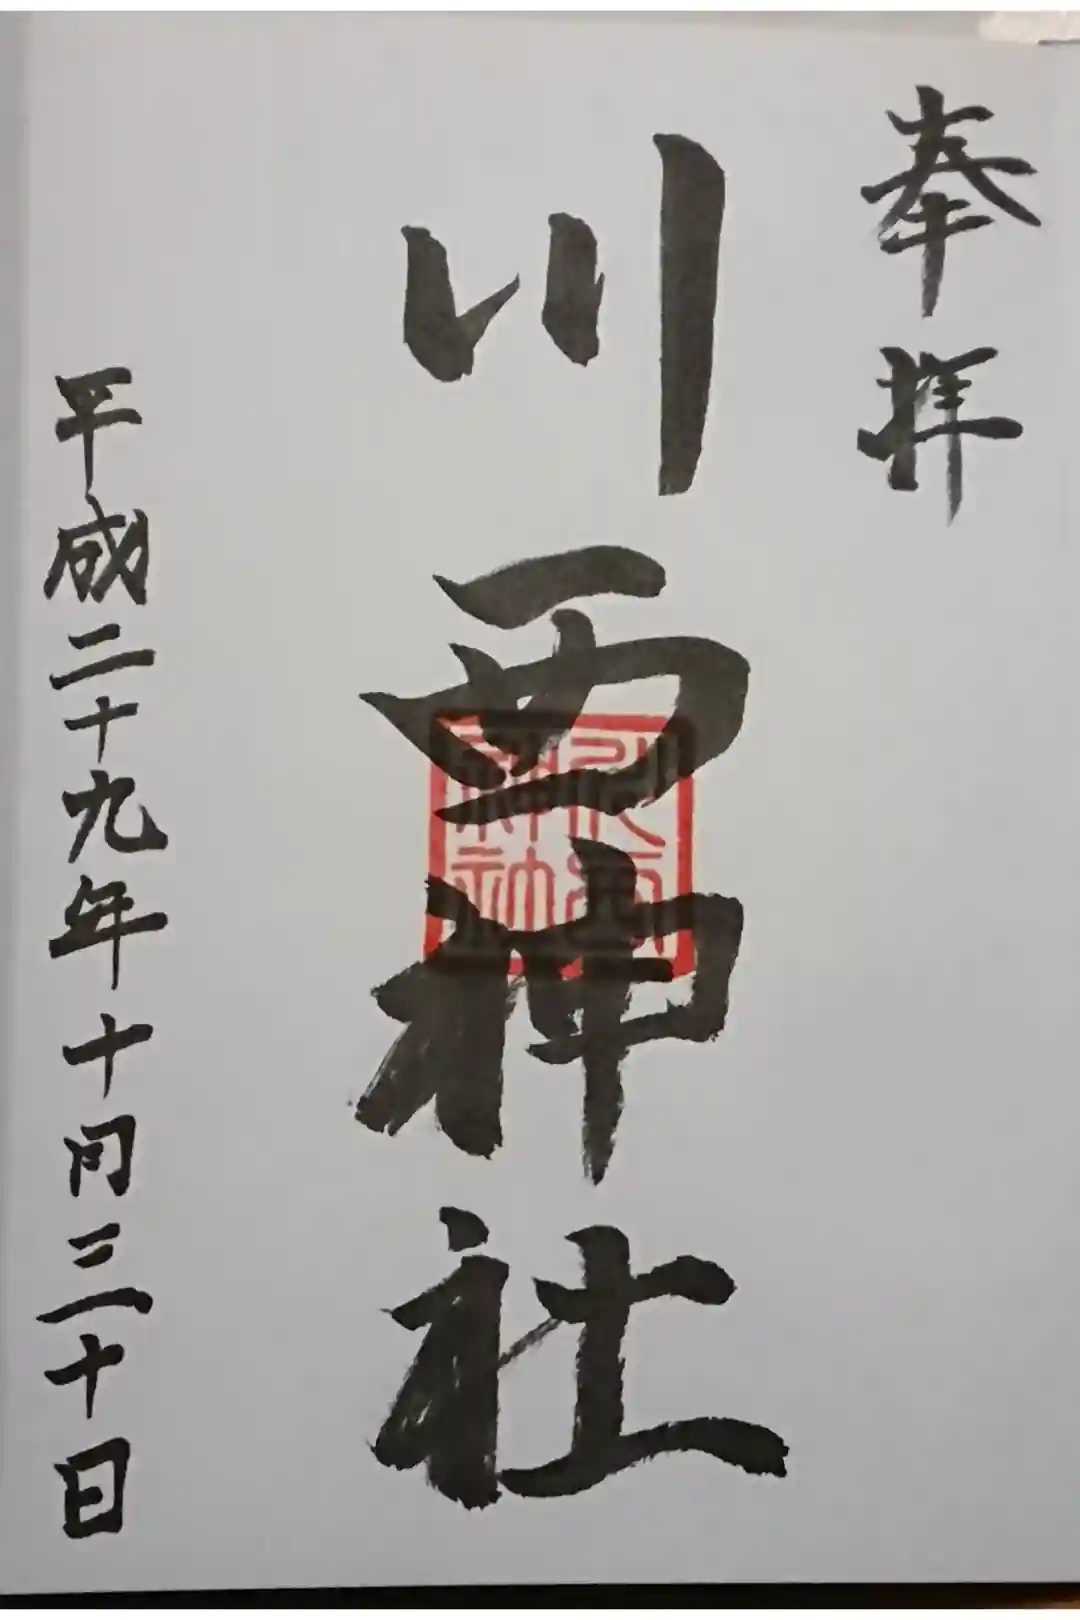 奉拝
川西神社
川西神社
平成二十九年十月三十日